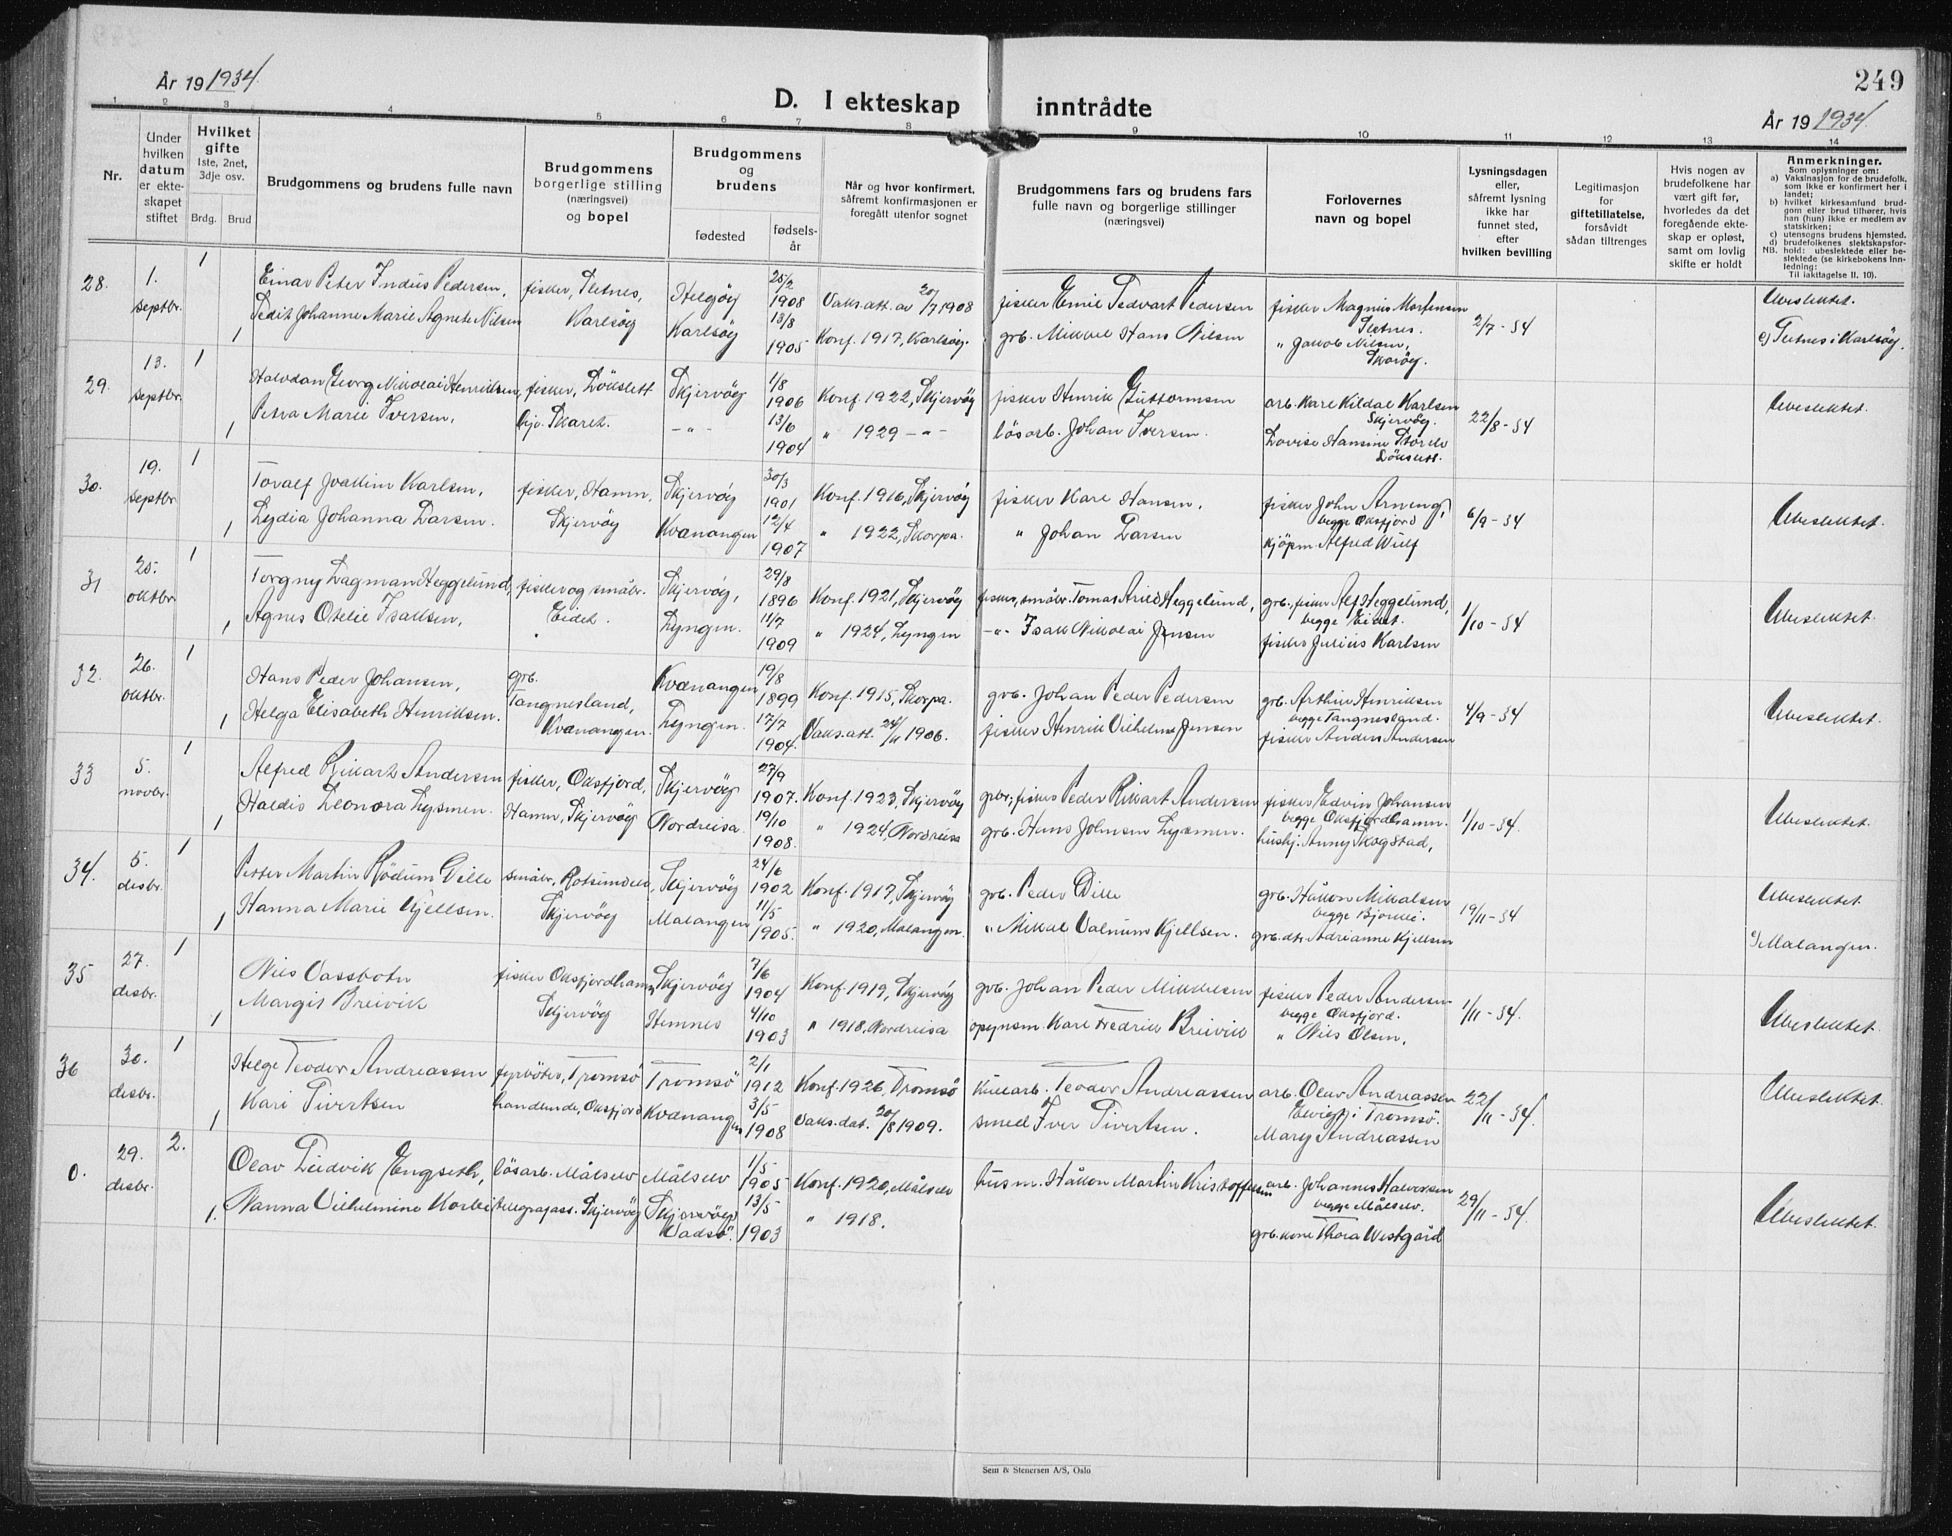 249
År 19 1934.
D. I ekteskap inntrådte
År 19 1934.
1 2 3 4 5 6 7 8 9 10 11 12 13 14
Nr.
Under hvilken datum er ekteskapet stiftet
Hvilket gifte
1ste, 2net, 3dje osv.
Brdg. Brud
Brudgommens og brudens fulle navn
Brudgommens borgerlige stilling (næringsvei) og bopel
Brudgommens og brudens
fødested
fødselsår
Når og hvor konfirmert, såfremt konfirmasjonen er foregått utenfor sognet
Brudgommens fars og brudens fars fulle navn og borgerlige stillinger (næringsvei)
Forlovernes navn og bopel
Lysningsdagen eller, såfremt lysning ikke har funnet sted, efter hvilken bevilling
Legitimasjon for giftetillatelse, forsåvidt sådan tiltrenges
Hvis nogen av brudefolkene har vært gift før, hvorledes da det foregående ekteskap er opløst, samt om lovlig skifte er holdt
Anmerkninger.
Som oplysninger om:
a) Vaksinasjon for de brudefolk, som ikke er konfirmert her i landet;
b) hvilket kirkesamfund brudgom eller brud tilhører, hvis han (hun) ikke er medlem av statskirken;
c) utensogns brudens hjemsted.
d) brudefolkenes slektskapsforhold: ubeslektede eller beslektede (se kirkebokens Innledning:
NB. Til iakttagelse II. 10).
28. 1. septbr. 1 Einar Peter Indius Pedersen, fisker, Sletnes, Helgøy 25/2 1908 Vaks.att. av 20/7 1908 fisker Emil Sedvart Pedersen fisker Magnus Mortensen Sletnes. 2/7-34 Ubeslektet.
1 Johanne Marie Agnete Nilsen Karlsøy Karlsøy 13/8 1905 Konf. 1917, Karlsøy. grb. Mikkel Hans Nilsen " Jakob Nilsen, Skorøy. c) i Karlsøy.
29. 13. septbr. 1 Halvdan Georg Nikolai Henriksen, fisker, Lökslett Skjervöy 1/8 1906 Konf. 1922, Skjervöy fisker Henrik Guttormsen arb. Kåre Kildal Karlsen Skjervöy. 22/8-34 Ubeslektet.
1 Petra Marie Iversen, Skaret. -"- 13/6 1904 " 1929 -"- lösarb. Johan Iversen. Lovise Hansine Lökslett.
30. 19. septbr. 1 Toralf Joakim Karlsen, fisker, Hamn, Skjervöy 30/3 1901 Konf. 1916, Skjervöy fisker Karl Hansen, fisker John Arneng, begge Oksfjord 6/9-34 Ubeslektet.
1 Lydia Johanna Larsen. Skjervöy Kvænangen 12/4 1907 " 1922, Skorpa. " Johan Larsen kjöpm. Alfred Wulf
31 25. oktbr. 1 Torgny Dagman Heggelund, fisker og småbr. Skjervöy, 29/8 1896 Konf. 1921, Skjervöy fisker, småbr. Tomas Arild Heggelund, grb., fisker Alf Heggelund, begge Eidet. 1/10-34 Ubeslektet.
1 Agnes Otelie Isaksen, Eidet. Lyngen. 11/7 1909 " 1924, Lyngen -"- Isak Nikolai Jensen fisker Julius Karlsen
32. 26. oktbr. 1 Hans Peder Johansen, grb. Tangnesland, Kvænangen 19/8 1899 Konf. 1915, Skorpa. grb. Johan Peder Pedersen grb. Arthur Henriksen begge Tangnesland. 4/9-34 Ubeslektet.
1 Helga Elisabeth Henriksen. Kvænangen. Lyngen. 17/7 1904. Vaks.att. 24/11 1906. fisker Henrik Vilhelm Jensen fisker Anders Andersen
33 5. novbr. 1 Alfred Rikart Andersen fisker, Oksfjord, Skjervöy 27/9 1907. Konf. 1923, Skjervöy grbr., fisker Peder Rikart Andersen fisker Edvin Johansen begge Oksfjordhamn. 1/10-34. Ubeslektet.
1 Haldis Leonora Lysmen. Hamn, Skjervöy Nordreisa. 19/10 1908. " 1924, Nordreisa grb. Hans Johnsen Lysmen. hushj. Anny Skogstad,
34. 5. desbr. 1 Petter Martin Rödum Dille småbr., Rotsundelv, Skjervöy 24/6 1902 Konf. 1917, Skjervöy grb. Peder Dille grb. Håkon Mikalsen begge 19/11-34 Ubeslektet.
1 Hanna Marie Kjellsen. Skjervöy Malangen 11/5 1905. " 1920, Malangen. " Mikal Kjellsen. grb.dtr. Adrianne Kjellsen c) Malangen.
35 27. desbr. 1 Nils Vassbotn fisker Oksfjordhamn, Skjervöy 7/6 1904 Konf. 1919, Skjervöy grb. Johan Peder Mikkelsen fisker Peder Andersen begge Oksfjord. 1/11-34. Ubeslektet.
1 Margit Breivik Skjervöy Hemnes 4/10 1903 " 1918, Nordreisa opsynsm. Karl Fredrik Breivik " Nils Olsen,
36 30. desbr. 1 Helge Teodor Andreassen fyrböter, Tromsö Tromsö 2/1 1912 Konf. 1926, Tromsö kullarb. Teodor Andreassen arb. Olav Andreassen i Tromsö. 22/11-34. Ubeslektet.
1 Kari Sivertsen handlende, Oksfjord Kvænangen 3/5 1908 Vaks.dat. 20/8 1909. smed Iver Sivertsen. Mary Andreassen
0. 29. desbr. 2. Olav Ludvik Engseth, lösarb. Målselv Målselv 1/5 1905 Konf. 1920, Målselv husm. Håkon Martin Kristoffersen arb. Johannes Halvorsen begge Målselv. 29/11-34. Ubeslektet.
1. Nanna Vilhelmine Korbi telegrafass. Skjervöy Skjervöy, Vadsö. 13/5 1903 " 1918. grb. kone Thora Westgård
Sem & Stenersen A/S, Oslo